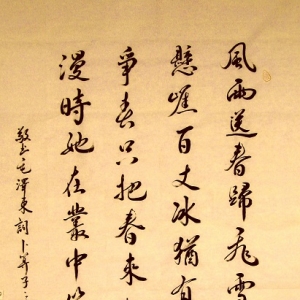 風雨送春歸飛雪
懸崖百丈冰猶有
爭春只把春來
漫時她在叢中笑
敬書毛澤東詞卜算子